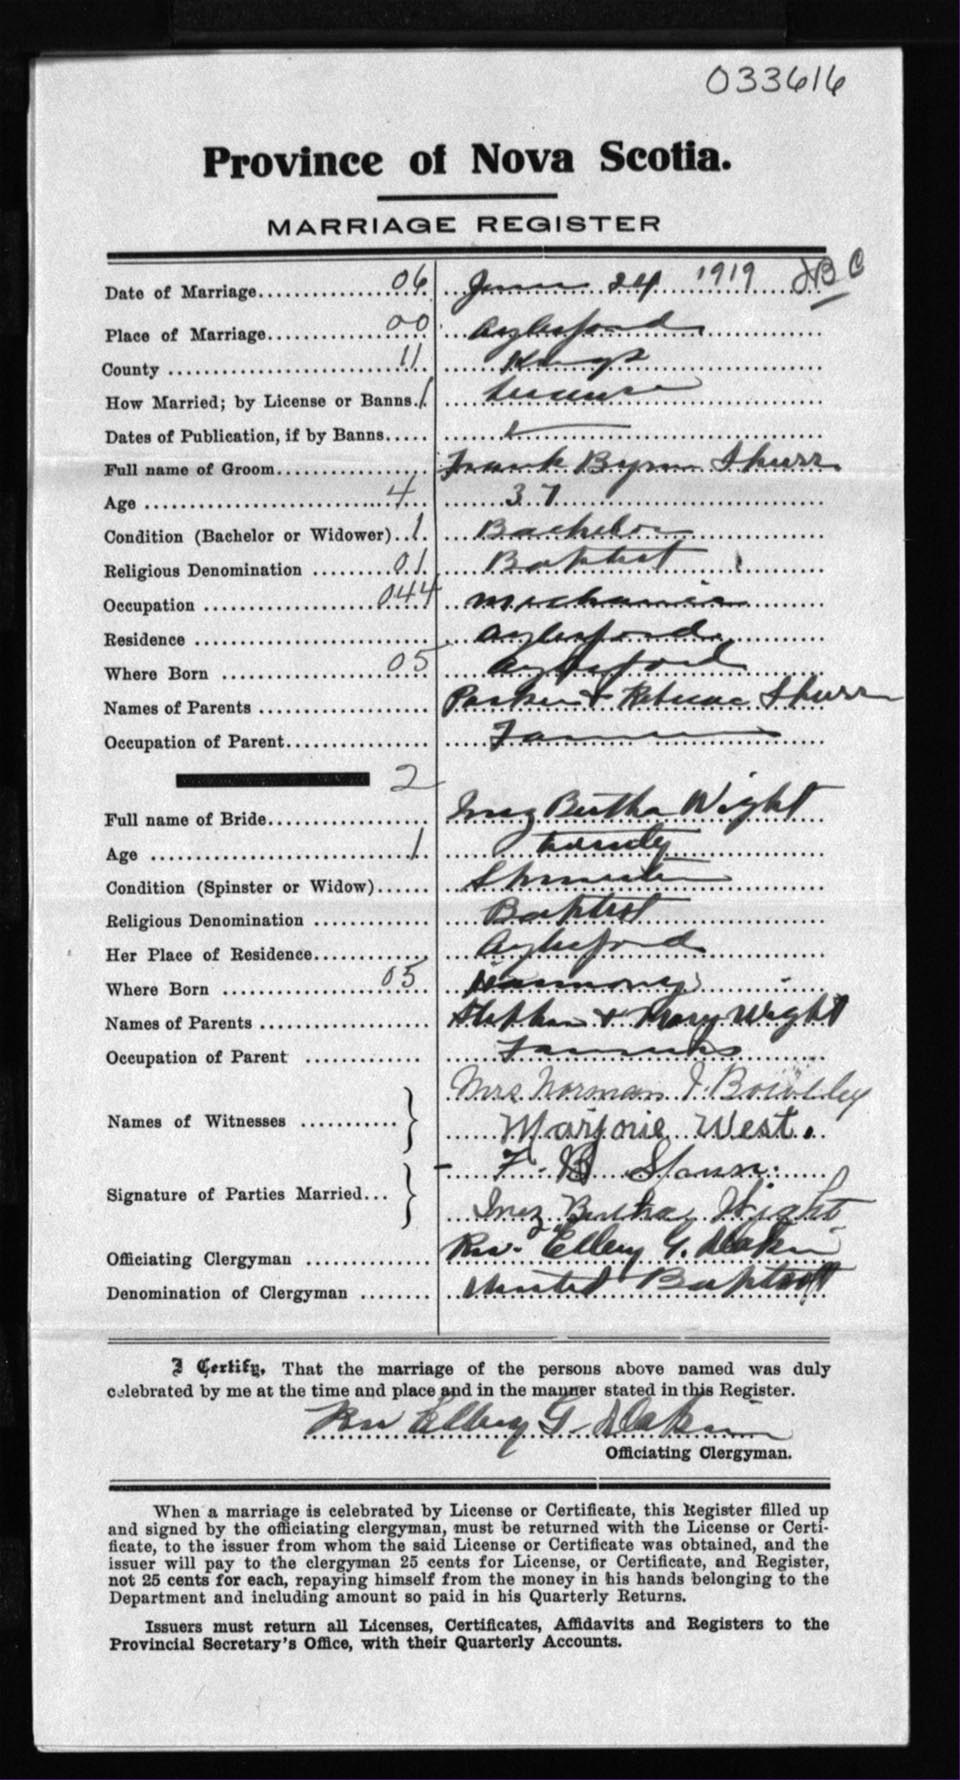 033616
Province of Nova Scotia.
MARRIAGE REGISTER
Date of Marriage 06 June 24 1919 JBC
Place of Marriage 00 Aylesford
County 11 Kings
How Married; by License or Banns 1 License
Dates of Publication, if by Banns
Full name of Groom Frank Byron Spurr
Age 4 37
Condition (Bachelor or Widower) 1 Bachelor
Religious Denomination 01 Baptist
Occupation 044 Mechanic
Residence Aylesford
Where Born 05 Aylesford
Names of Parents Parker & Rebecca Spurr
Occupation of Parent Farmer
2
Full name of Bride Inez Bertha Wight
Age 1 twenty
Condition (Spinster or Widow) Spinster
Religious Denomination Baptist
Her Place of Residence Aylesford
Where Born 05 Harmony
Names of Parents Stephen & Mary Wight
Occupation of Parent
Mrs Norman J. Bowlby
Names of Witnesses
Marjorie West.
F. B
Signature of Parties Married
Inez Bertha Wight
Officiating Clergyman Rev. Ellery G. Dakin
Denomination of Clergyman United Baptist
I Certify, That the marriage of the persons above named was duly
celebrated by me at the time and place and in the manner stated in this Register.
Rev Ellery G. Dakin
Officiating Clergyman.
When a marriage is celebrated by License or Certificate, this Register filled up
and signed by the officiating clergyman, must be returned with the License or Certi-
ficate, to the issuer from whom the said License or Certificate was obtained, and the
issuer will pay to the clergyman 25 cents for License, or Certificate, and Register,
not 25 cents for each, repaying himself from the money in his hands belonging to the
Department and including amount so paid in his Quarterly Returns.
Issuers must return all Licenses, Certificates, Affidavits and Registers to the
Provincial Secretary's Office, with their Quarterly Accounts.